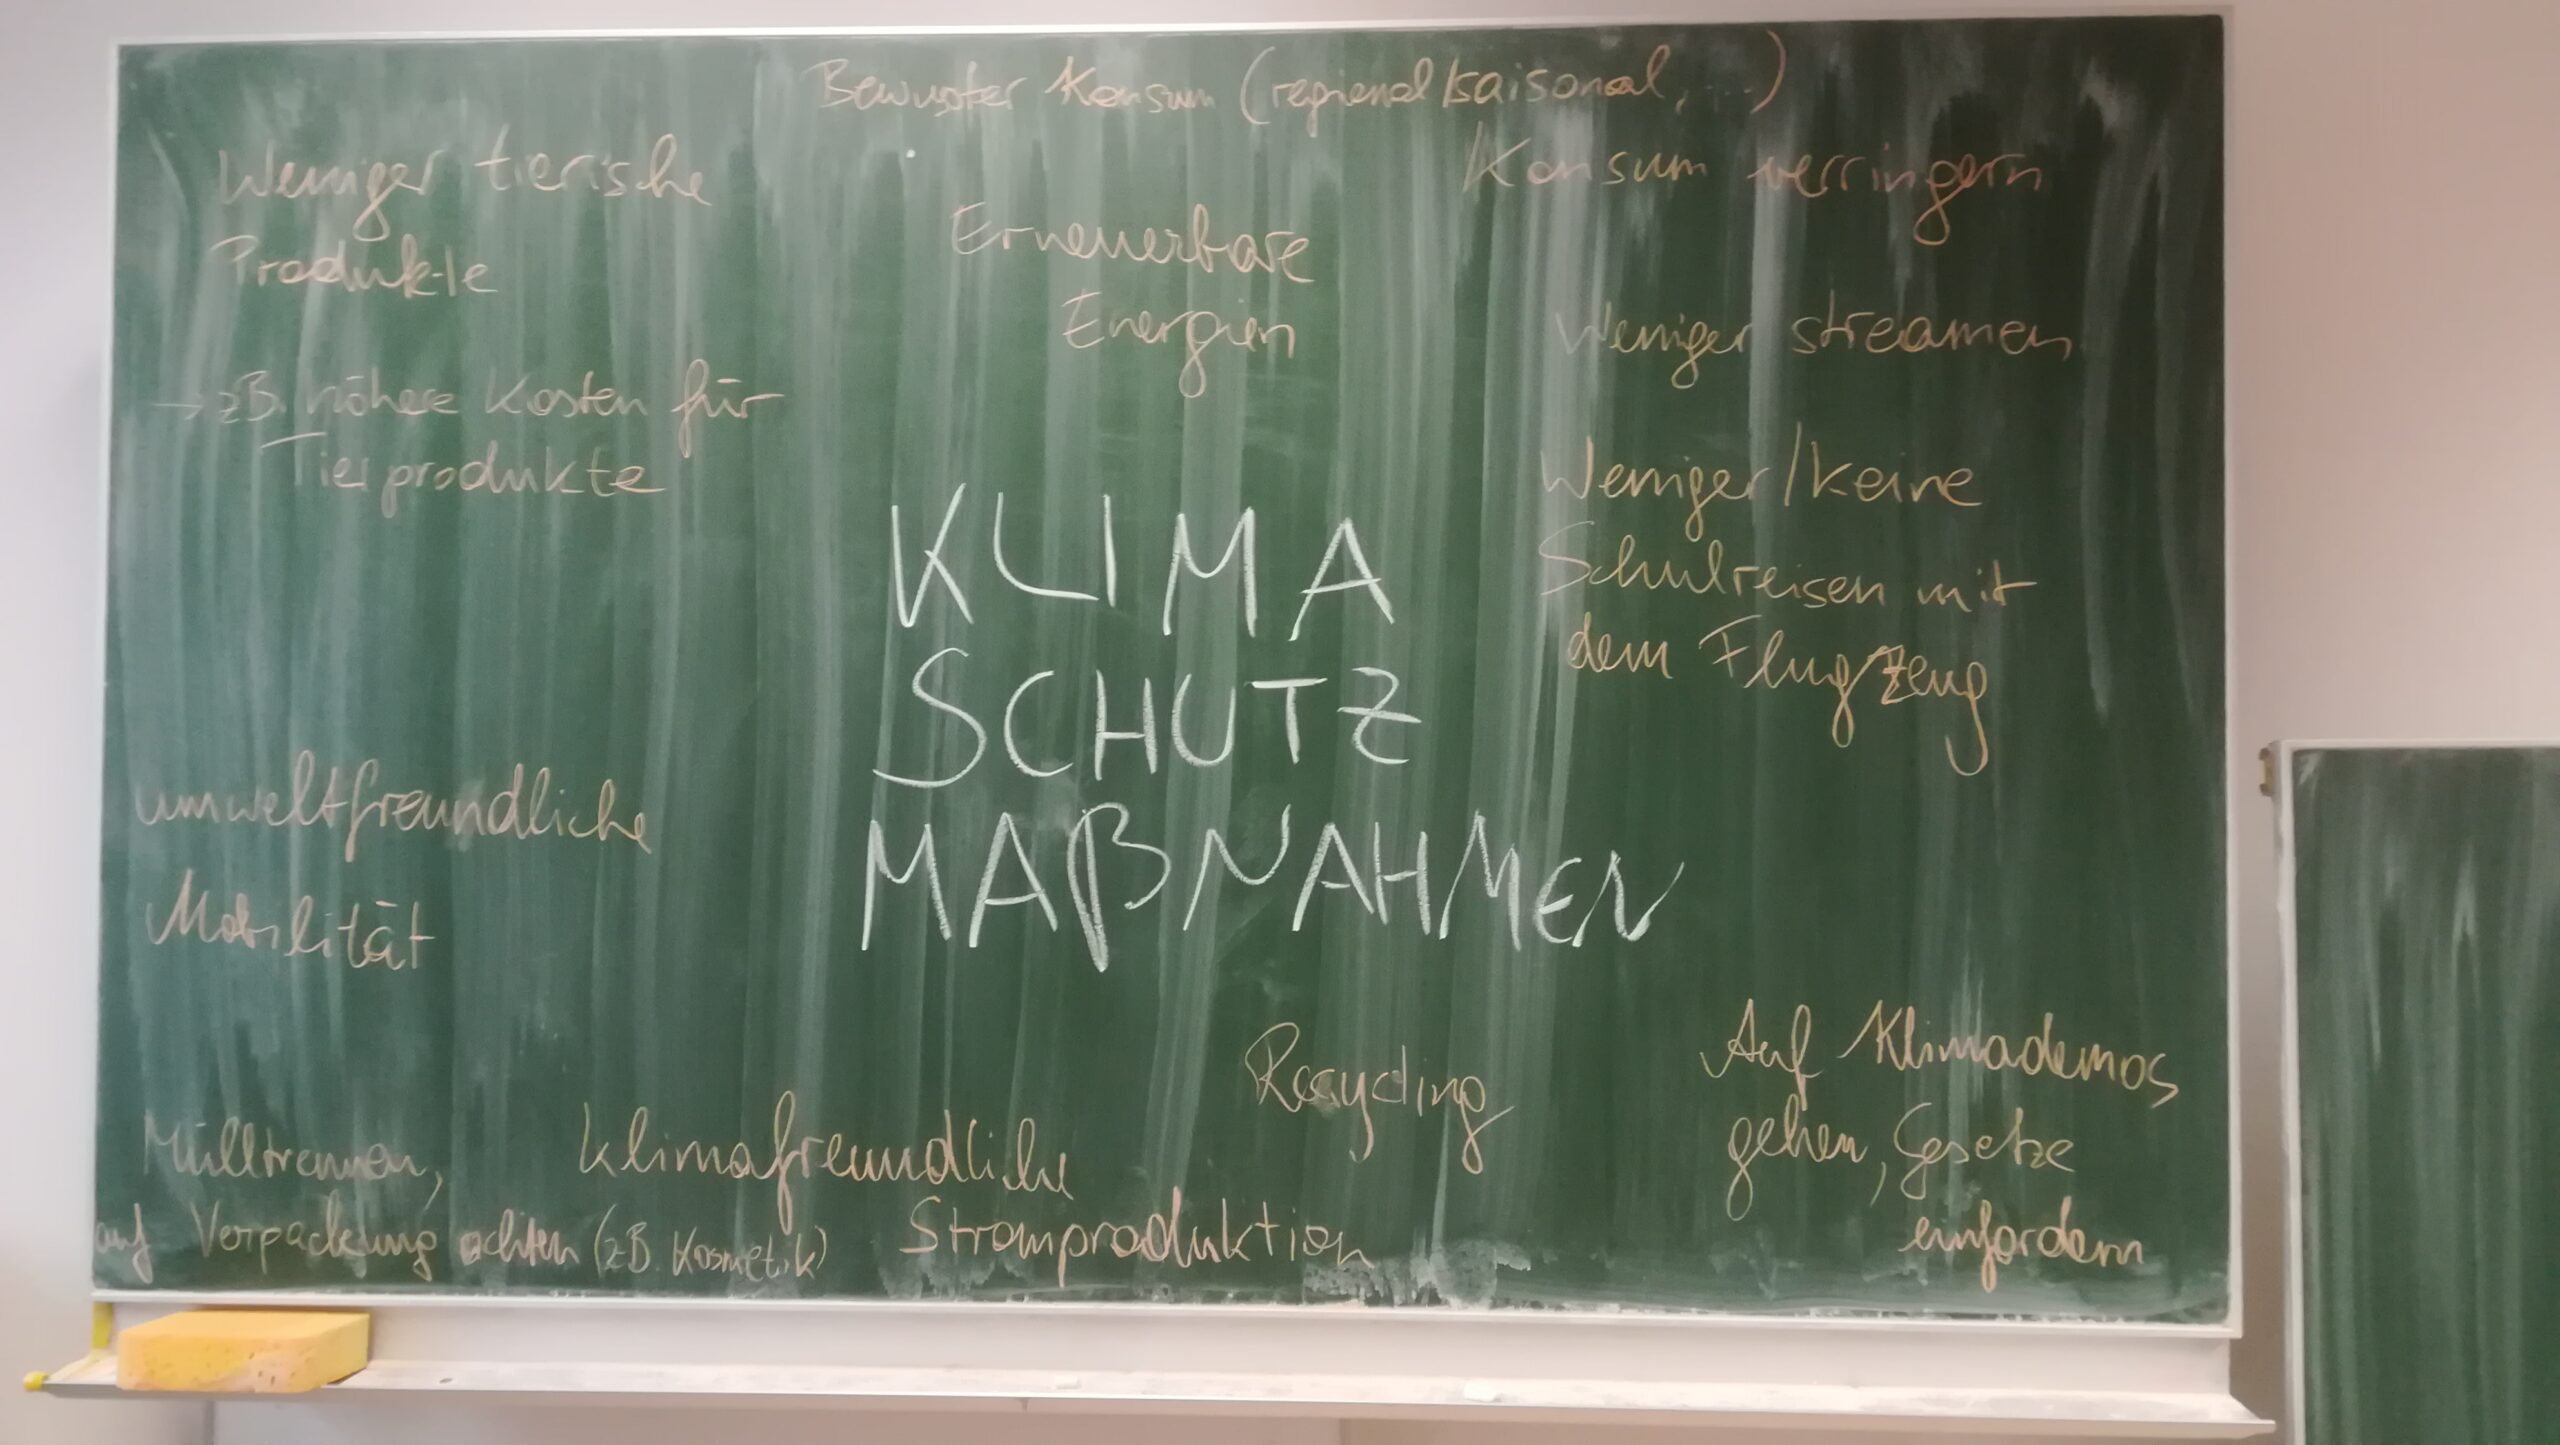 Bewusster Konsum (regional/saisonal, ...)
Weniger tierische
Produkte
→ zB. höhere Kosten für
Tierprodukte
Erneuerbare
Energien
Konsum verringern
Weniger streamen
Weniger/keine
Schulreisen mit
dem Flugzeug
KLIMA
SCHUTZ
MAßNAHMEN
umweltfreundliche
Mobilität
Mülltrennen,
auf Verpackung achten (zB. Kosmetik)
Klimafreundliche
Stromproduktion
Recycling
Auf Klimademos
gehen, Gesetze
einfordern